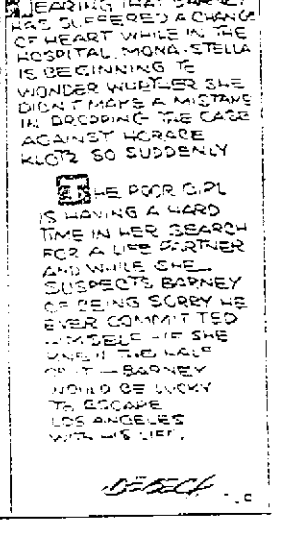 HEARING THAT BARNEY
HAS SUFFERED A CHANGE
OF HEART WHILE IN THE
HOSPITAL, MONA-STELLA
IS BEGINNING TO
WONDER WHETHER SHE
DIDN'T MAKE A MISTAKE
IN DROPPING THE CASE
AGAINST HORACE
KLOTZ SO SUDDENLY
THE POOR GIRL
IS HAVING A HARD
TIME IN HER SEARCH
FOR A LIFE PARTNER
AND WHILE SHE
SUSPECTS BARNEY
OF BEING SORRY HE
EVER COMMITTED
HIMSELF - IF SHE
KNEW THE HALF
OF IT — BARNEY
WOULD BE LUCKY
TO ESCAPE
LOS ANGELES
WITH HIS LIFE.
DEBECK